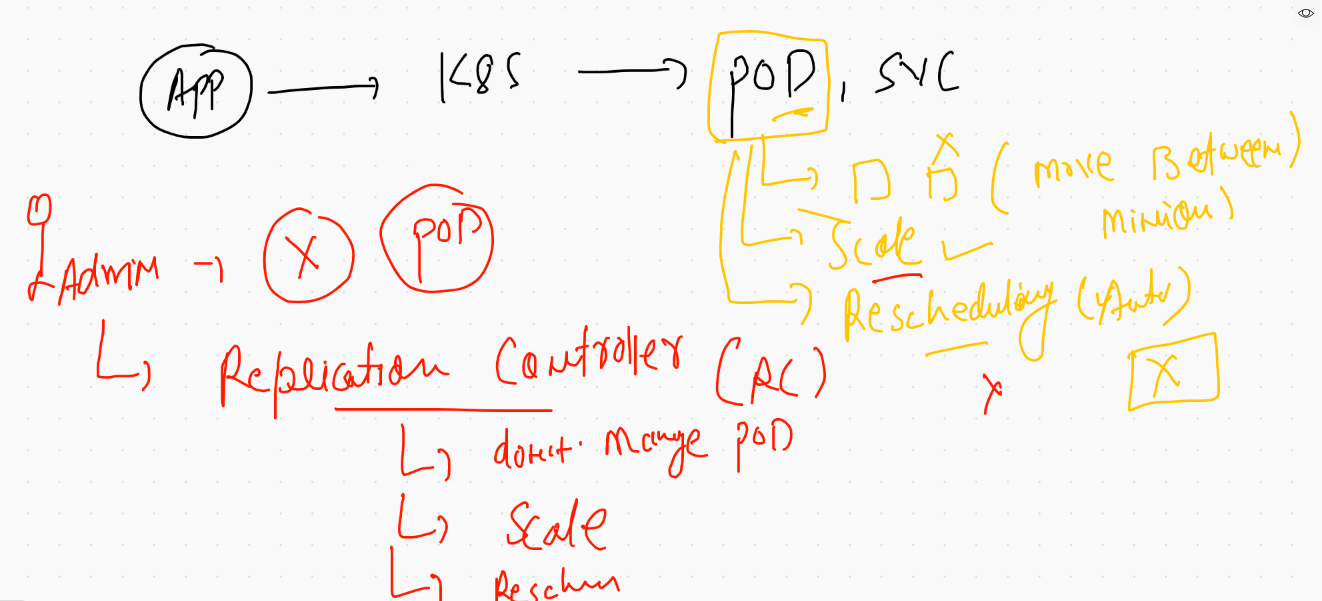 APP → K8S → POD, SVC
X
( move Between
minion )
Scale ✓
Rescheduling (Auto)
X
X
Admin → X POD
Replication Controller (RC)
direct. Mange POD
Scale
Reschun